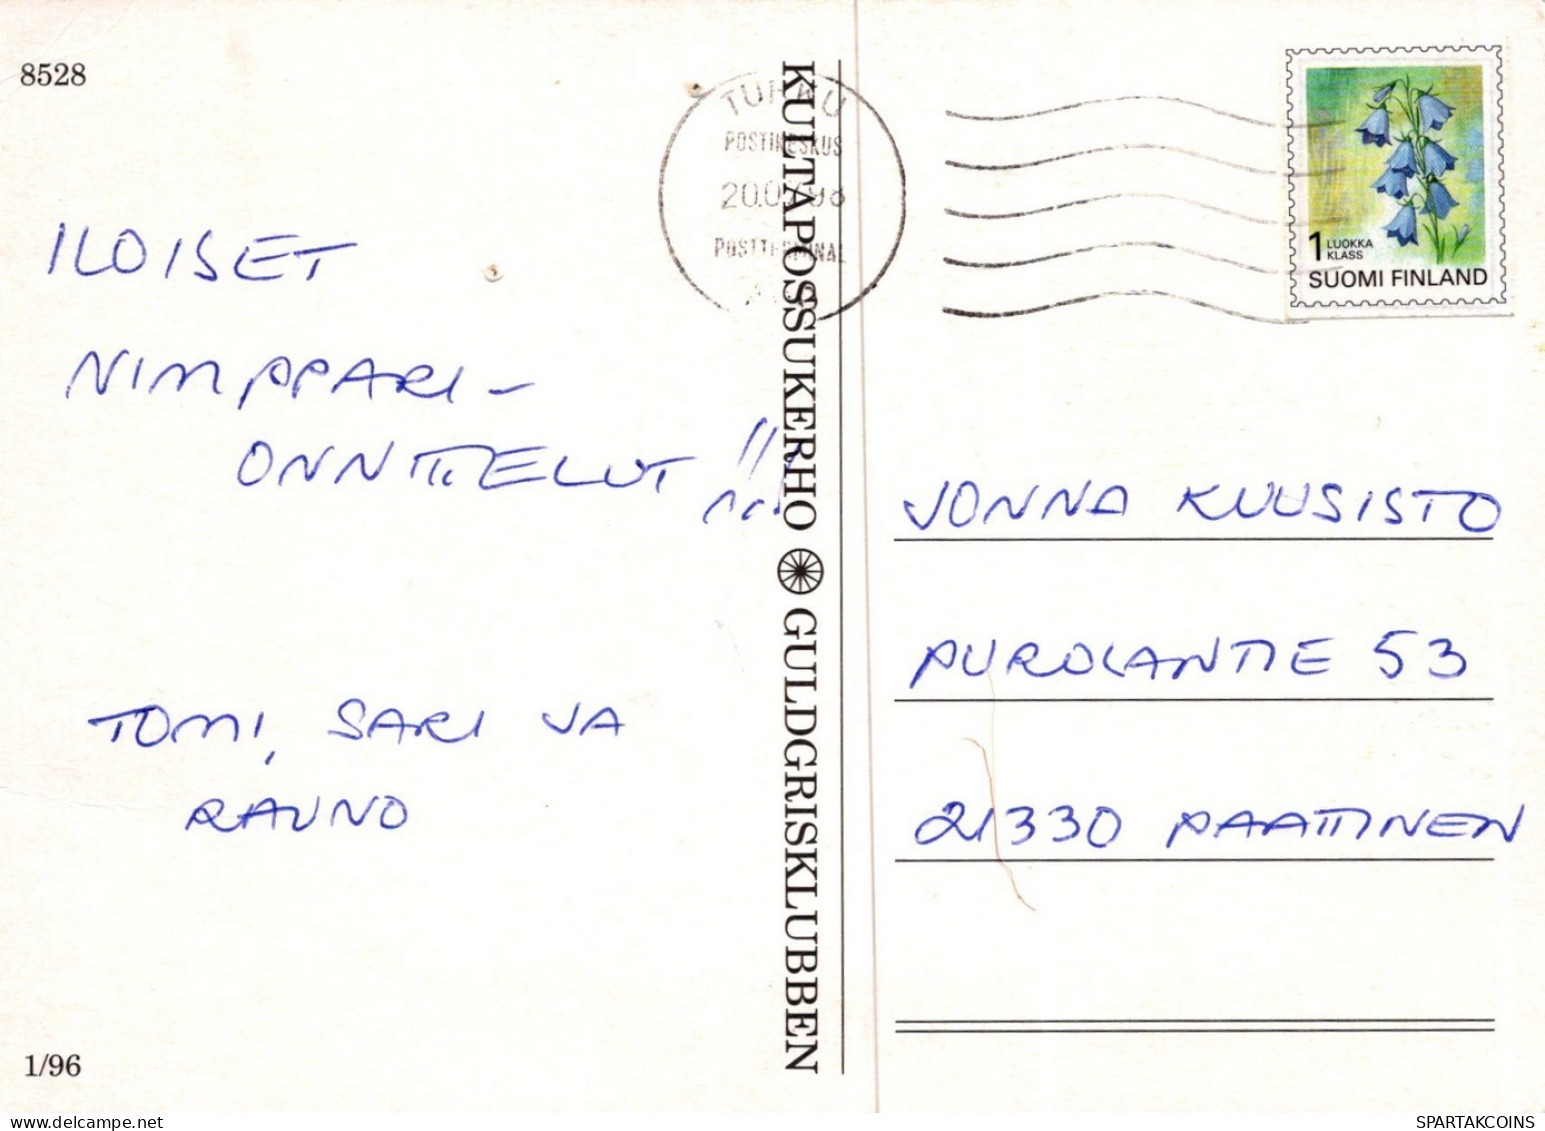 8528
ILOISET
NIMPPARI-
ONNITTELUT !!!
TOMI, SARI JA
RAUNO
1/96
KULTAPOSSUKERHO GULDGRISKLUBBEN
TURKU
POSTIKESKUS
POSTTERMINAL
1 LUOKKA
KLASS
SUOMI FINLAND
JONNA KUUSISTO
PUROLANTIE 53
21330 PAATTINEN
SPARTAKCOINS